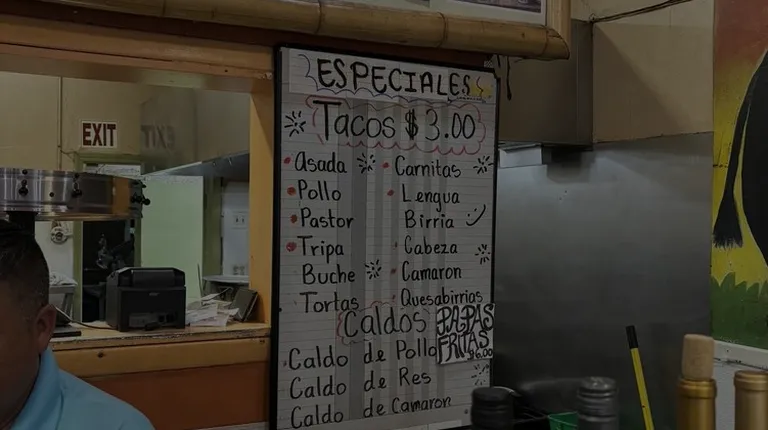 ESPECIALES
Tacos $3.00
Asada
Pollo
Pastor
Tripa
Buche
Tortas
Carnitas
Lengua
Birria
Cabeza
Camaron
Quesabirrias
Caldos
Caldo de Pollo
Caldo de Res
Caldo de Camaron
PAPAS
FRITAS
$6.00
EXIT